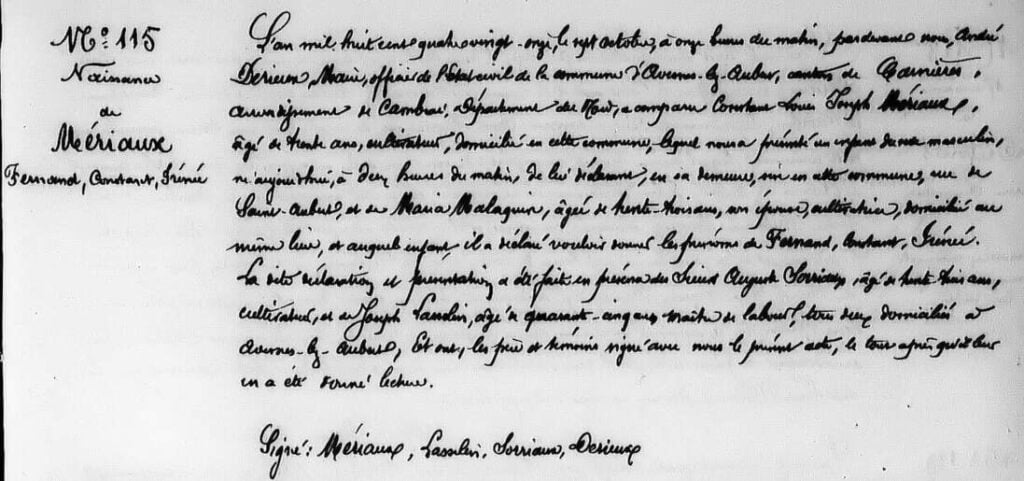 N° 115
Naissance
de
Mériaux
Fernand, Constant, Irénée
L'an mil huit cent quatre vingt-onze, le sept octobre, à onze heures du matin, par devant nous, André
Derieux Maire, officier de l'Etat civil de la commune d'Avesnes-lez-Aubert, canton de Carnières,
arrondissement de Cambrai, Département du Nord, a comparu Constant Louis Joseph Mériaux,
âgé de trente ans, cultivateur, domicilié en cette commune, lequel nous a présenté un enfant du sexe masculin,
né aujourd'hui, à deux heures du matin, de lui déclarant, en sa demeure, sise en cette commune, rue de
Saint-Aubert, et de Maria Malaquin, âgée de trente-trois ans, son épouse, cultivatrice, domiciliée au
même lieu, et auquel enfant, il a déclaré vouloir donner les prénoms de Fernand, Constant, Irénée.
La dite déclaration et présentation a été fait en présence des Sieurs Auguste Sorriaux, âgé de trente trois ans,
cultivateur, et de Joseph âgé de quarante-cinq ans maître de labour, tous deux domiciliés à
Avesnes-lez-Aubert, Et ont, les père et témoins signé avec nous le présent acte, le tout après qu'il leur
en a été donné lecture.
Signé: Mériaux, Sorriaux, Derieux